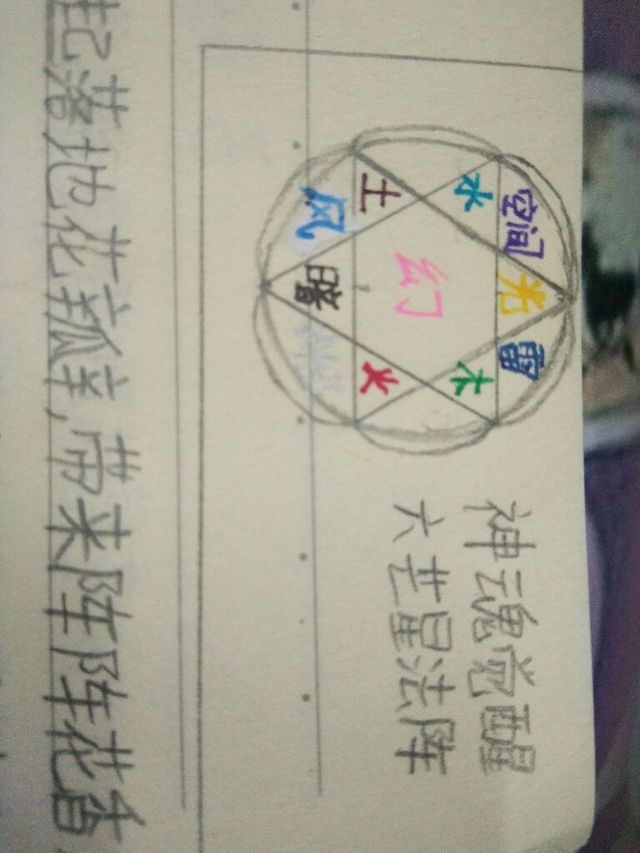 空间 光 雷
水 木
幻
土 火
风 暗
神魂觉醒
六芒星法阵
起落地花瓣,带来阵阵花香